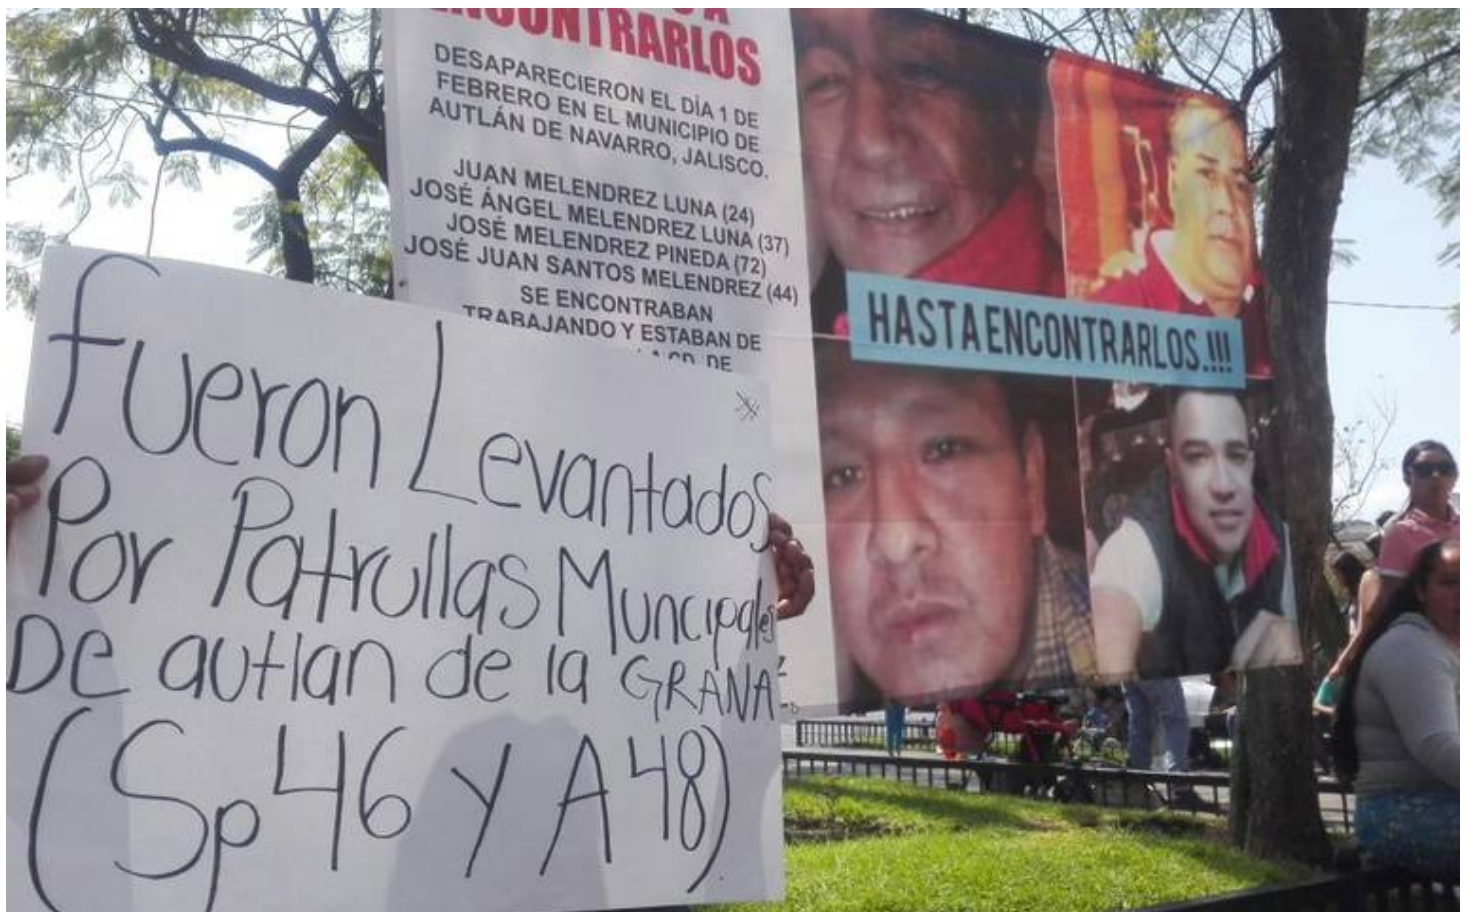 ENCONTRARLOS
DESAPARECIERON EL DÍA 1 DE
FEBRERO EN EL MUNICIPIO DE
AUTLÁN DE NAVARRO, JALISCO.
JUAN MELENDREZ LUNA (24)
JOSÉ ÁNGEL MELENDREZ LUNA (37)
JOSÉ MELENDREZ PINEDA (72)
JOSÉ JUAN SANTOS MELENDREZ (44)
SE ENCONTRABAN
TRABAJANDO Y ESTABAN DE
CD. DE
HASTA ENCONTRARLOS.!!!
fueron Levantados
Por Patrullas Muncipales
De autlan de la GRANA
(Sp 46 Y A 48)